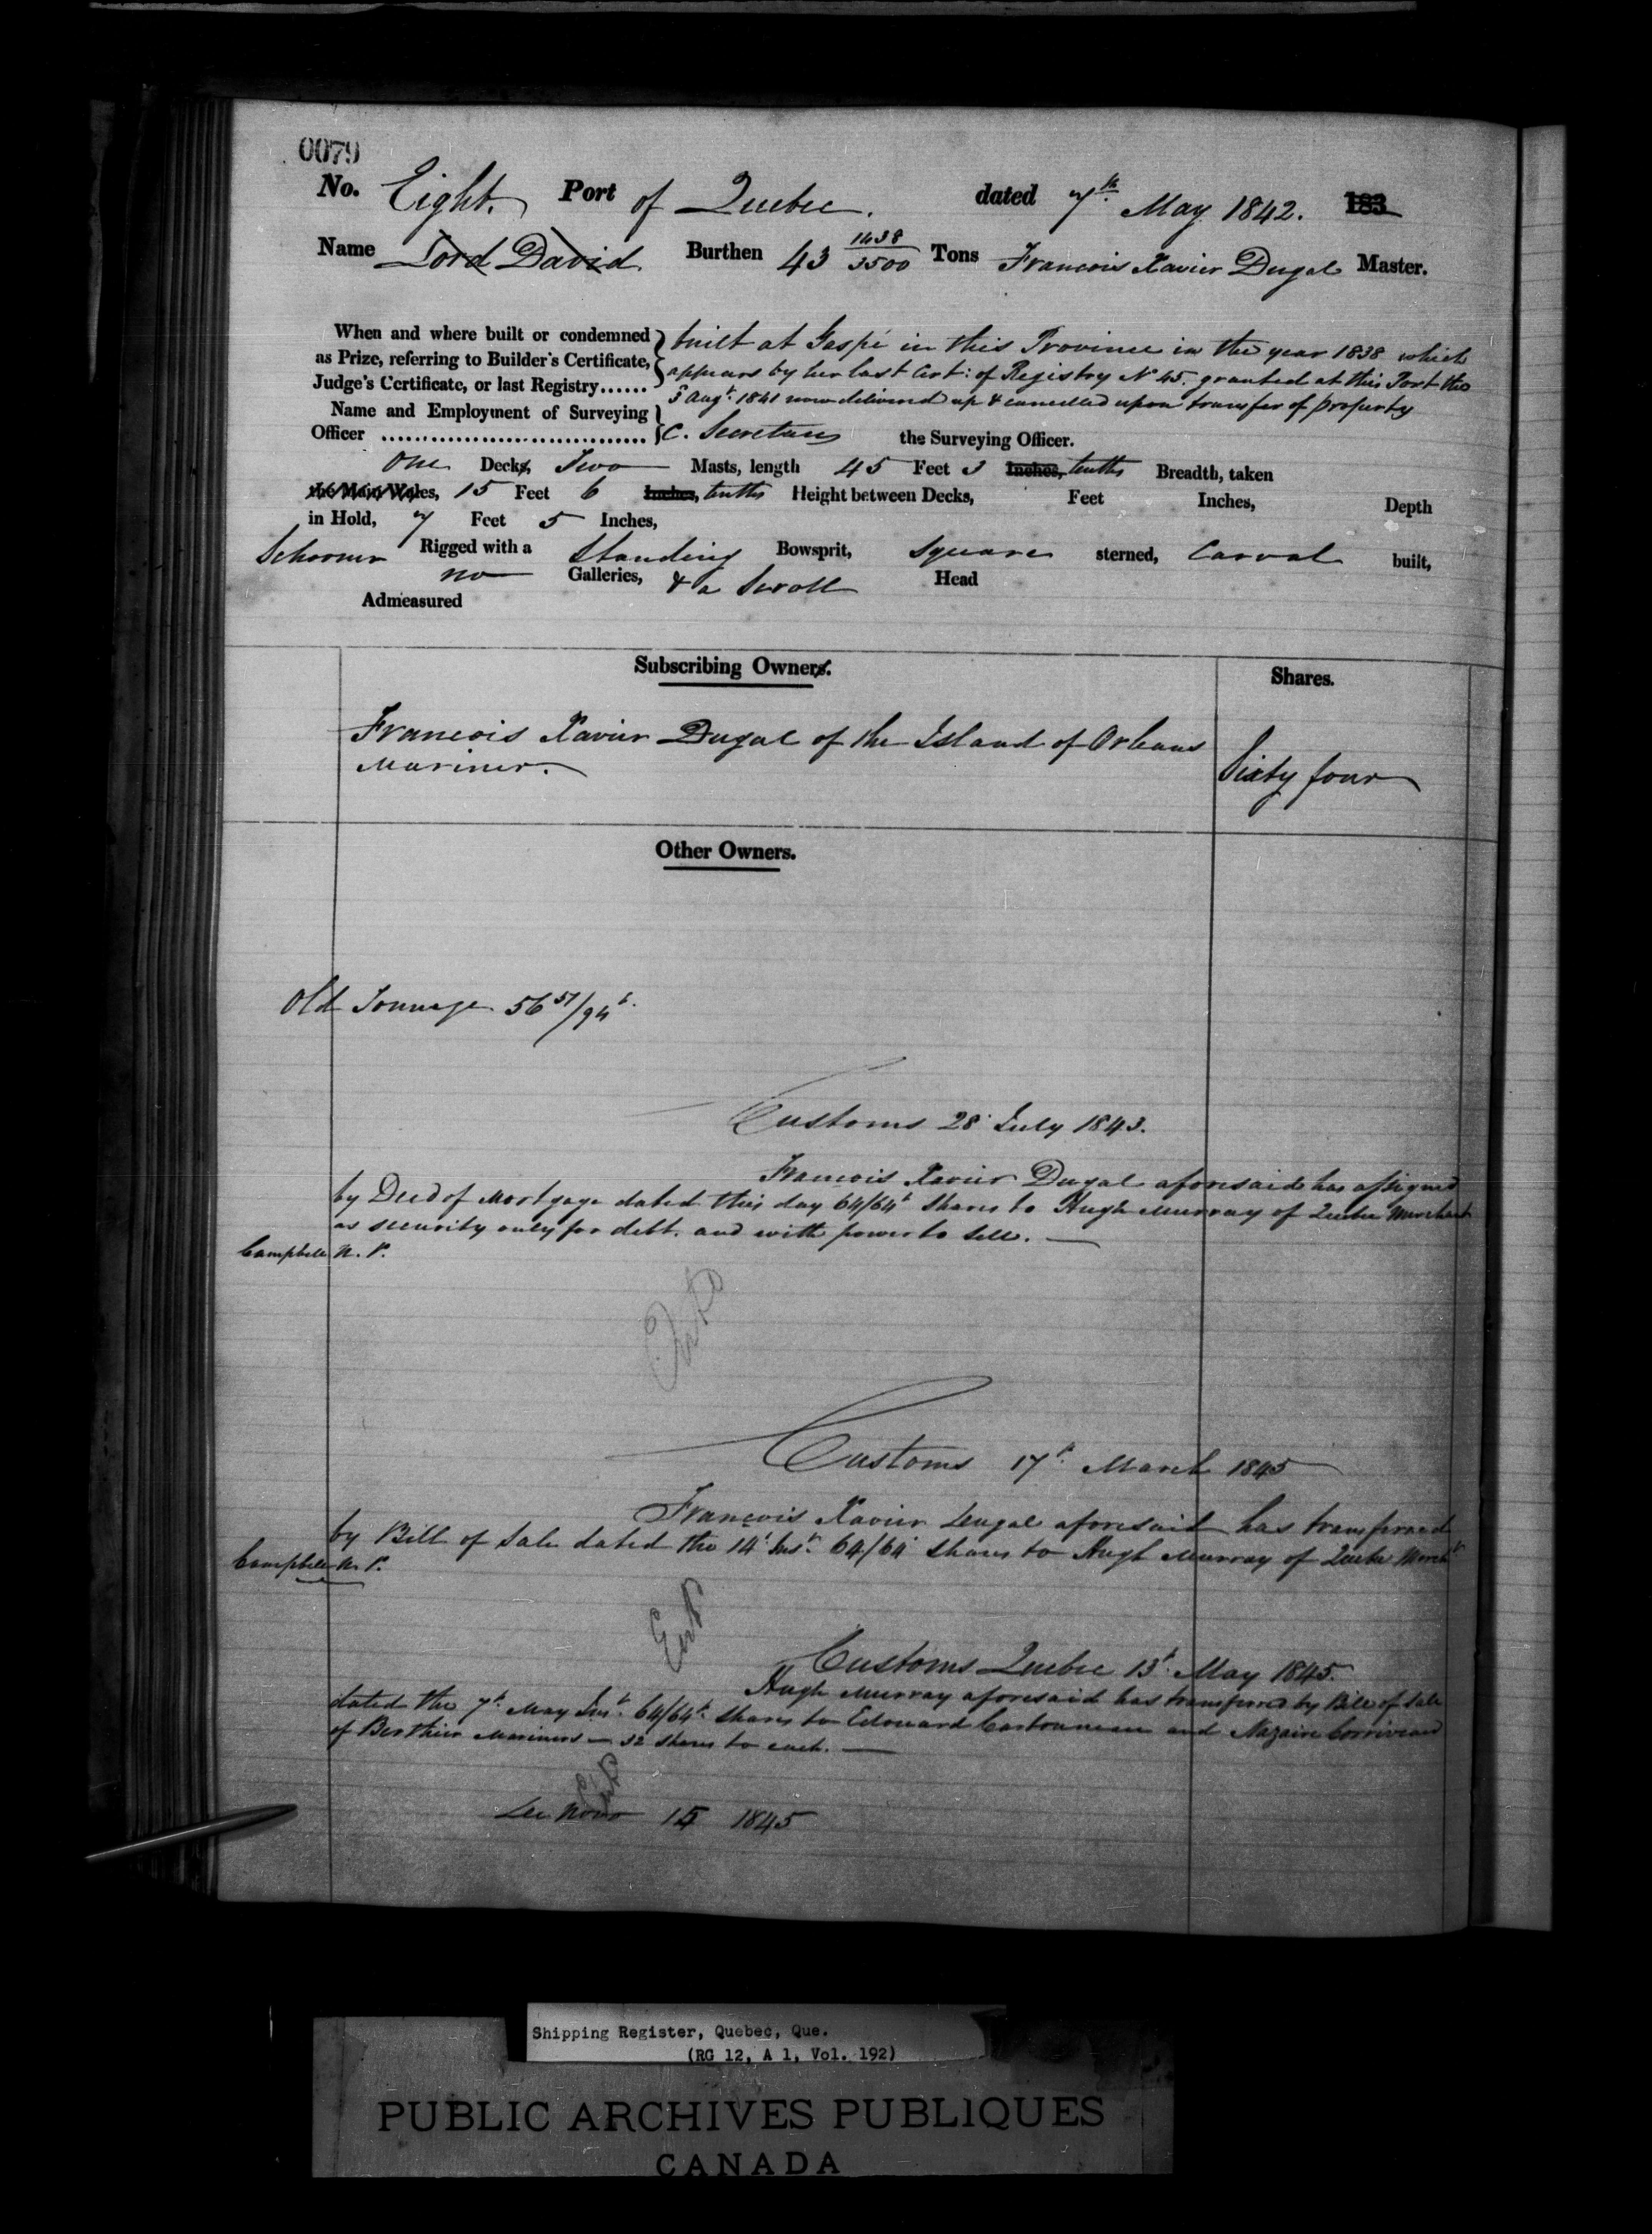 0079
No. Eight. Port of Quebec. dated 7th May 1842. 183
Name Lord David Burthen 43 1438/3500 Tons Francois Xavier Dugal Master.
When and where built or condemned as Prize, referring to Builder's Certificate, Judge's Certificate, or last Registry...... } built at Gaspé in this Province in the year 1838 which
appears by her last Cert: of Registry No 45. granted at this Port the
5 Augt. 1841 now delivered up & cancelled upon transfer of property
Name and Employment of Surveying
Officer ................................ } C. Secretan the Surveying Officer.
One Decks, Two Masts, length 45 Feet 3 Inches, tenths Breadth, taken
the Main Wales, 15 Feet 6 Inches, tenths Height between Decks, Feet Inches, Depth
in Hold, 7 Feet 5 Inches,
Schooner Rigged with a Standing Bowsprit, Square sterned, Carval built,
no Galleries, & a Scroll Head
Admeasured
Subscribing Owners. Shares.
Francois Xavier Dugal of the Island of Orleans
Mariner. Sixty four
Other Owners.
Old Tonnage 56 57/94t.
Customs 28 July 1843.
Francois Xavier Dugal aforesaid has assigned
by Deed of Mortgage dated this day 64/64t shares to Hugh Murray of Quebec Merchant
as security only for debt. and with power to sell.
Campbell N. P.
Customs 17t. March 1845
Francois Xavier Dugal aforesaid has transferred
by Bill of Sale dated the 14t Inst. 64/64 shares to Hugh Murray of Quebec Mercht
Campbell N. P.
Customs Quebec 13t. May 1845.
Hugh Murray aforesaid has transferred by Bill of Sale
dated the 7t. May Inst. 64/64t. shares to Edouard Carbonneau and Nazaire Corriveau
of Berthier Mariners — 32 shares to each.
De Novo 15 1845
Shipping Register, Quebec, Que.
(RG 12, A 1, Vol. 192)
PUBLIC ARCHIVES PUBLIQUES
CANADA